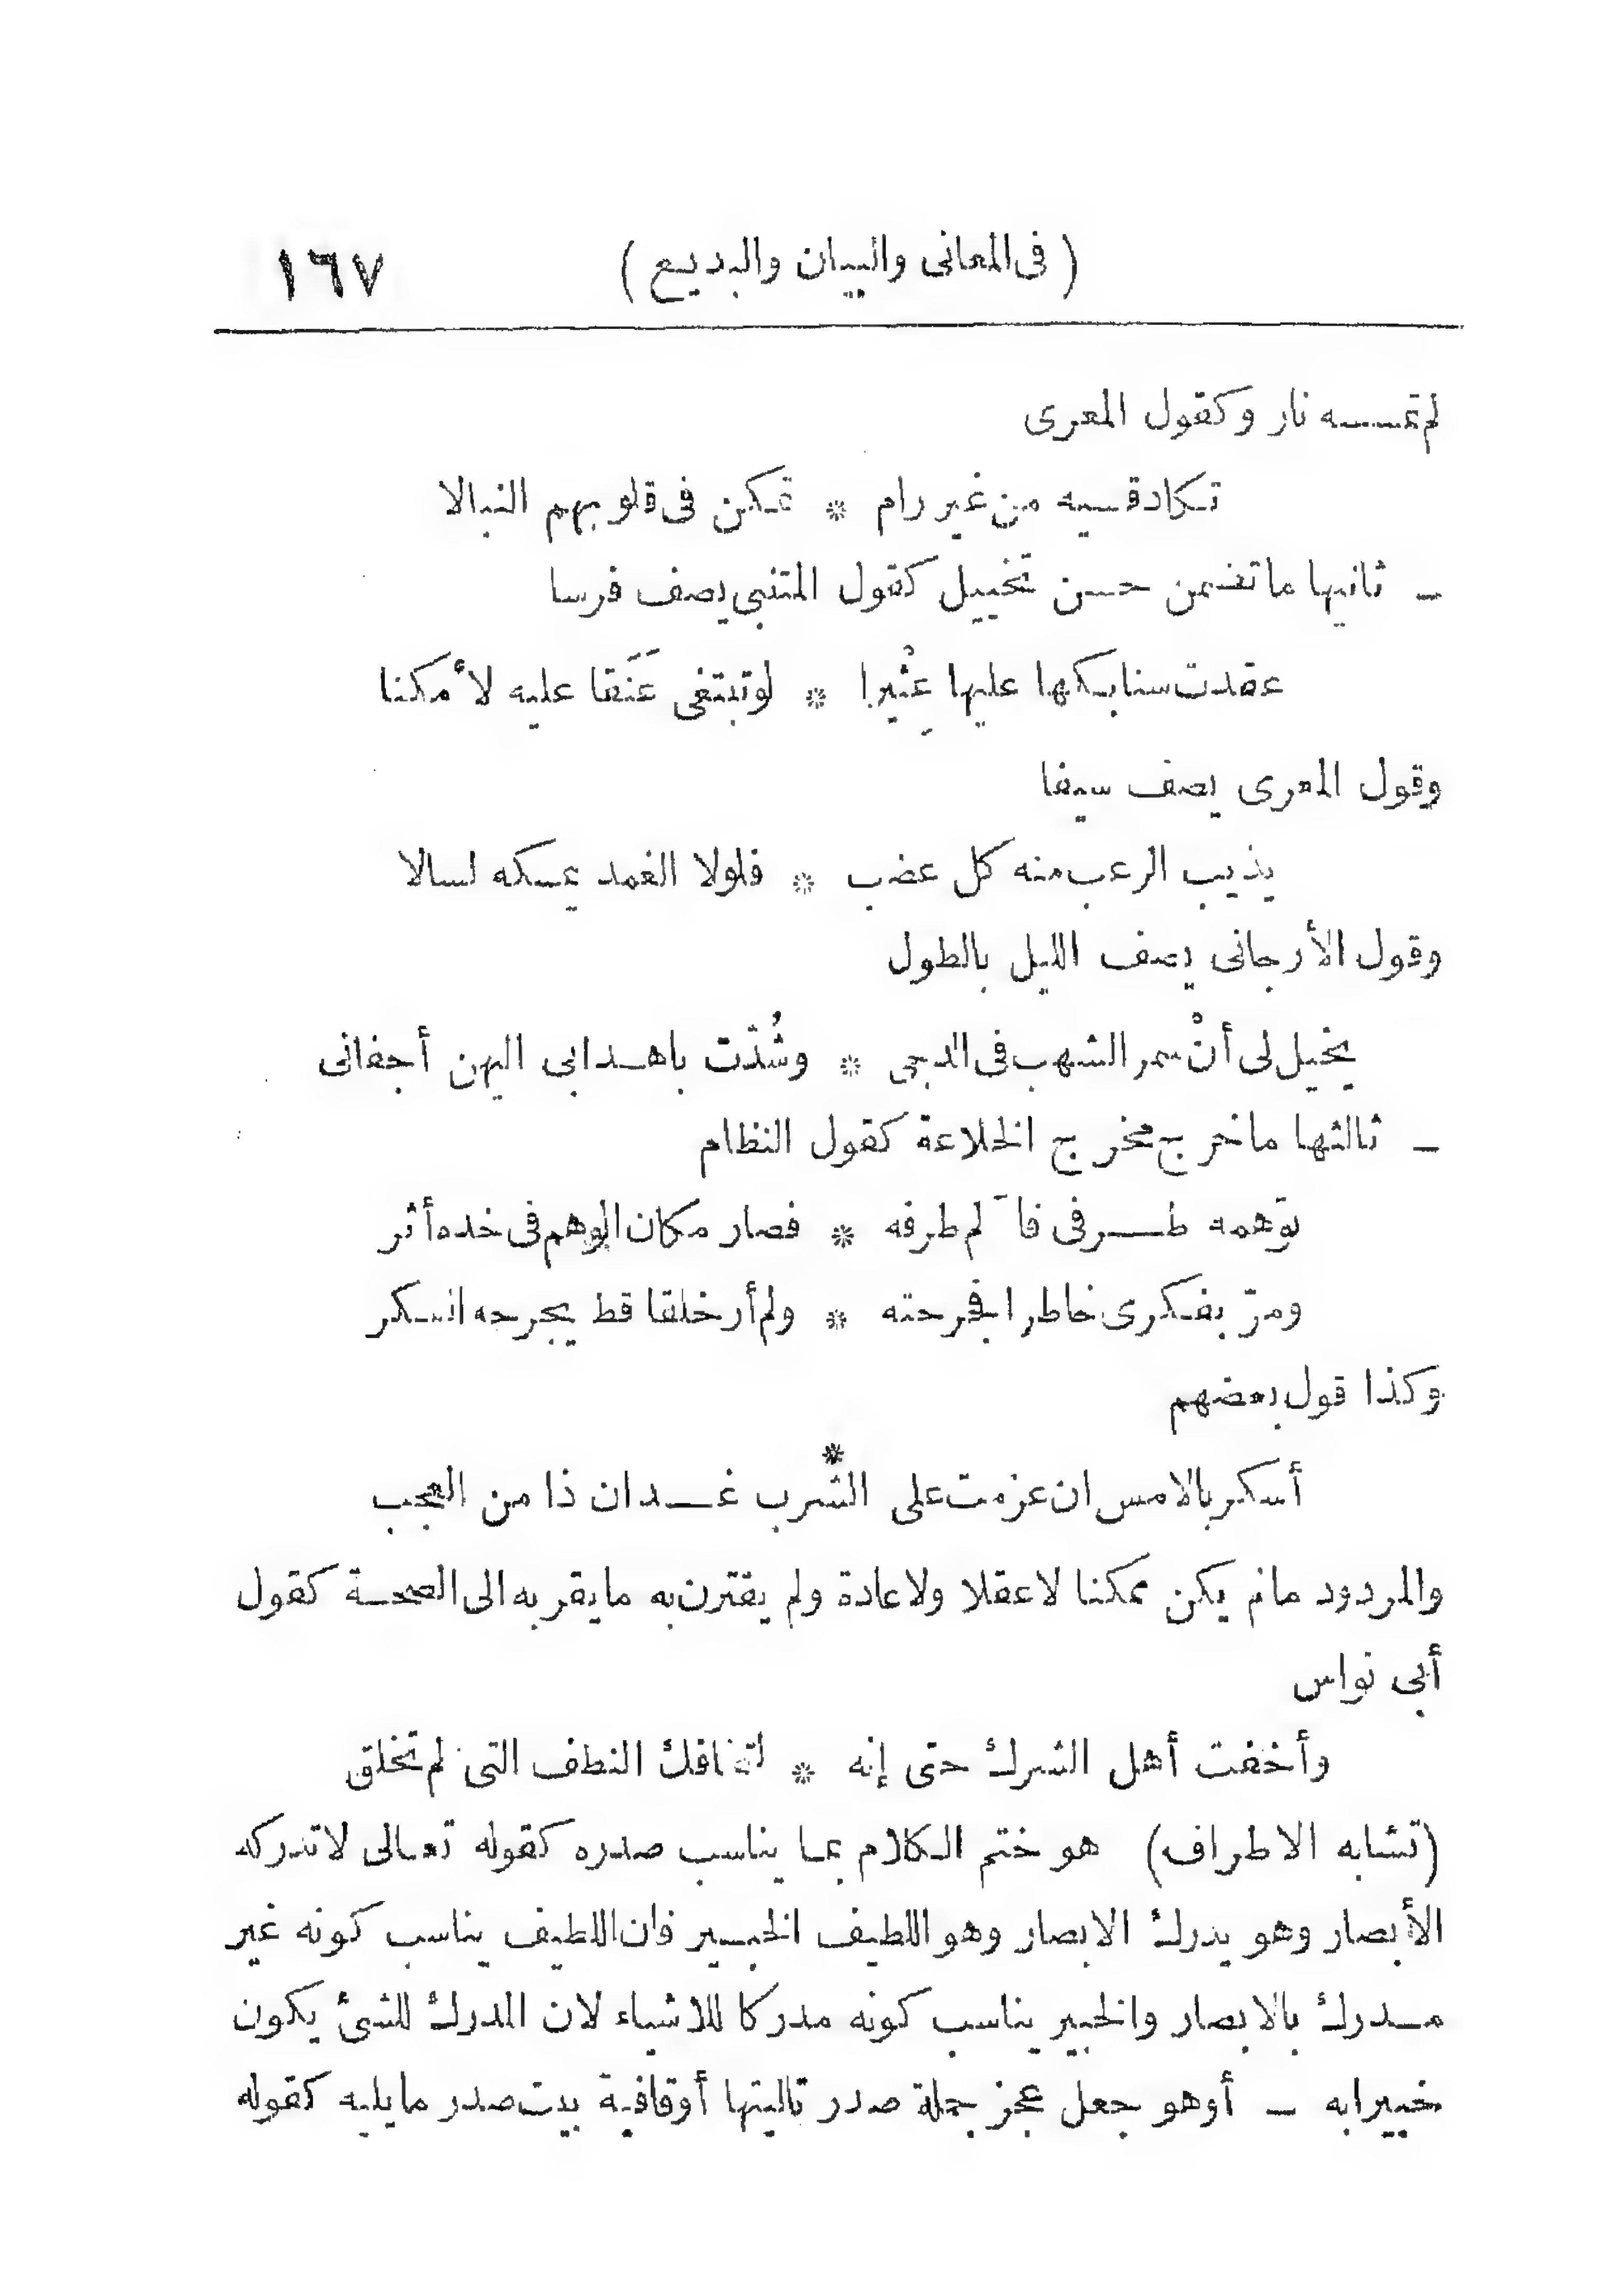 ( فى المعانى والبيان والبديع ) ١٦٧
لم تمسسه نار وكقول المعرى
تكاد قسيه من غير رام * تمكن فى قلوبهم النبالا
ـ ثانيها ما تضمن حسن تخييل كقول المتنبى يصف فرسا
عقدت سنابكها عليها عِثْيرا * لو تبتغى عَنَقا عليه لأمكنا
وقول المعرى يصف سيفا
يذيب الرعب منه كل عضب * فلولا الغمد يمسكه لسالا
وقول الأرجانى يصف الليل بالطول
يخيل لى أنْ سمر الشهب فى الدجى * وشُدّت باهدابى اليهن أجفانى
ـ ثالثها ما خرج مخرج الخلاعة كقول النظام
توّهمه طرفى فآلم طرفه * فصار مكان الوهم فى خده أثر
ومرّ بفكرى خاطرا فجرحته * ولم أر خلقا قط يجرحه الفكر
وكذا قول بعضهم
أسكر بالامس ان عزمت على الشّرب * غدا ان ذا من العجب
والمردود مالم يكن ممكنا لا عقلا ولا عادة ولم يقترن به ما يقربه الى الصحة كقول
أبى نواس
وأخفت أهل الشرك حتى إنه * لتخافك النطف التى لم تخلق
(تشابه الاطراف) هو ختم الكلام بما يناسب صدره كقوله تعالى لا تدركه
الأبصار وهو يدرك الابصار وهو اللطيف الخبير فان اللطيف يناسب كونه غير
مدرك بالابصار والخبير يناسب كونه مدركا للاشياء لان المدرك للشئ يكون
خبيرا به ـ أو هو جعل عجز جملة صدر تاليتها أو قافية بيت صدر ما يليه كقوله